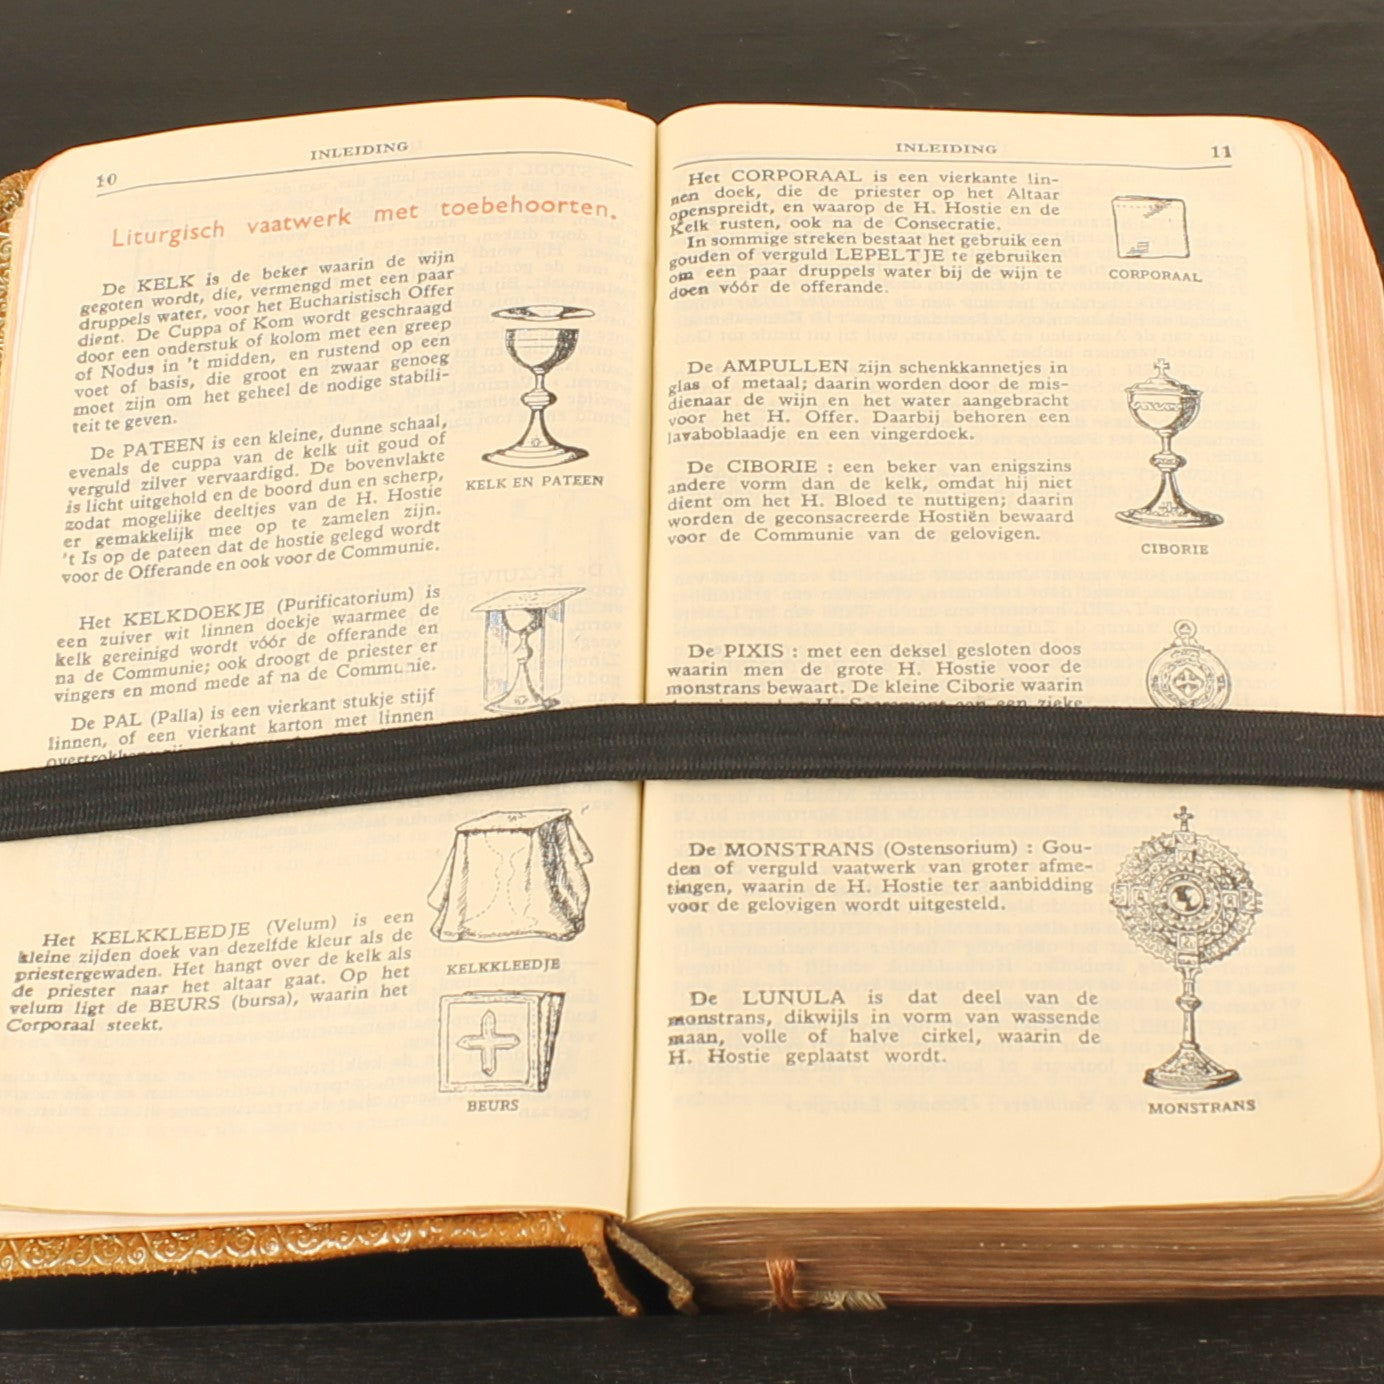 10
INLEIDING
Liturgisch vaatwerk met toebehoorten.
De KELK is de beker waarin de wijn
gegoten wordt, die, vermengd met een paar
druppels water, voor het Eucharistisch Offer
dient. De Cuppa of Kom wordt geschraagd
door een onderstuk of kolom met een greep
of Nodus in 't midden, en rustend op een
voet of basis, die groot en zwaar genoeg
moet zijn om het geheel de nodige stabili-
teit te geven.
De PATEEN is een kleine, dunne schaal,
evenals de cuppa van de kelk uit goud of
verguld zilver vervaardigd. De bovenvlakte
is licht uitgehold en de boord dun en scherp,
zodat mogelijke deeltjes van de H. Hostie
er gemakkelijk mee op te zamelen zijn.
't Is op de pateen dat de hostie gelegd wordt
voor de Offerande en ook voor de Communie.
KELK EN PATEEN
Het KELKDOEKJE (Purificatorium) is
een zuiver wit linnen doekje waarmee de
kelk gereinigd wordt vóór de offerande en
na de Communie; ook droogt de priester er
vingers en mond mede af na de Communie.
De PAL (Palla) is een vierkant stukje stijf
linnen, of een vierkant karton met linnen
KELKKLEEDJE
Het KELKKLEEDJE (Velum) is een
kleine zijden doek van dezelfde kleur als de
priestergewaden. Het hangt over de kelk als
de priester naar het altaar gaat. Op het
velum ligt de BEURS (bursa), waarin het
Corporaal steekt.
BEURS
INLEIDING
11
Het CORPORAAL is een vierkante lin-
nen doek, die de priester op het Altaar
openspreidt, en waarop de H. Hostie en de
Kelk rusten, ook na de Consecratie.
In sommige streken bestaat het gebruik een
gouden of verguld LEPELTJE te gebruiken
om een paar druppels water bij de wijn te
doen vóór de offerande.
CORPORAAL
De AMPULLEN zijn schenkkannetjes in
glas of metaal; daarin worden door de mis-
dienaar de wijn en het water aangebracht
voor het H. Offer. Daarbij behoren een
lavaboblaadje en een vingerdoek.
De CIBORIE : een beker van enigszins
andere vorm dan de kelk, omdat hij niet
dient om het H. Bloed te nuttigen; daarin
worden de geconsacreerde Hostiën bewaard
voor de Communie van de gelovigen.
CIBORIE
De PIXIS : met een deksel gesloten doos
waarin men de grote H. Hostie voor de
monstrans bewaart. De kleine Ciborie waarin
H. Sacrament aan een zieke
De MONSTRANS (Ostensorium) : Gou-
den of verguld vaatwerk van groter afme-
tingen, waarin de H. Hostie ter aanbidding
voor de gelovigen wordt uitgesteld.
De LUNULA is dat deel van de
monstrans, dikwijls in vorm van wassende
maan, volle of halve cirkel, waarin de
H. Hostie geplaatst wordt.
MONSTRANS